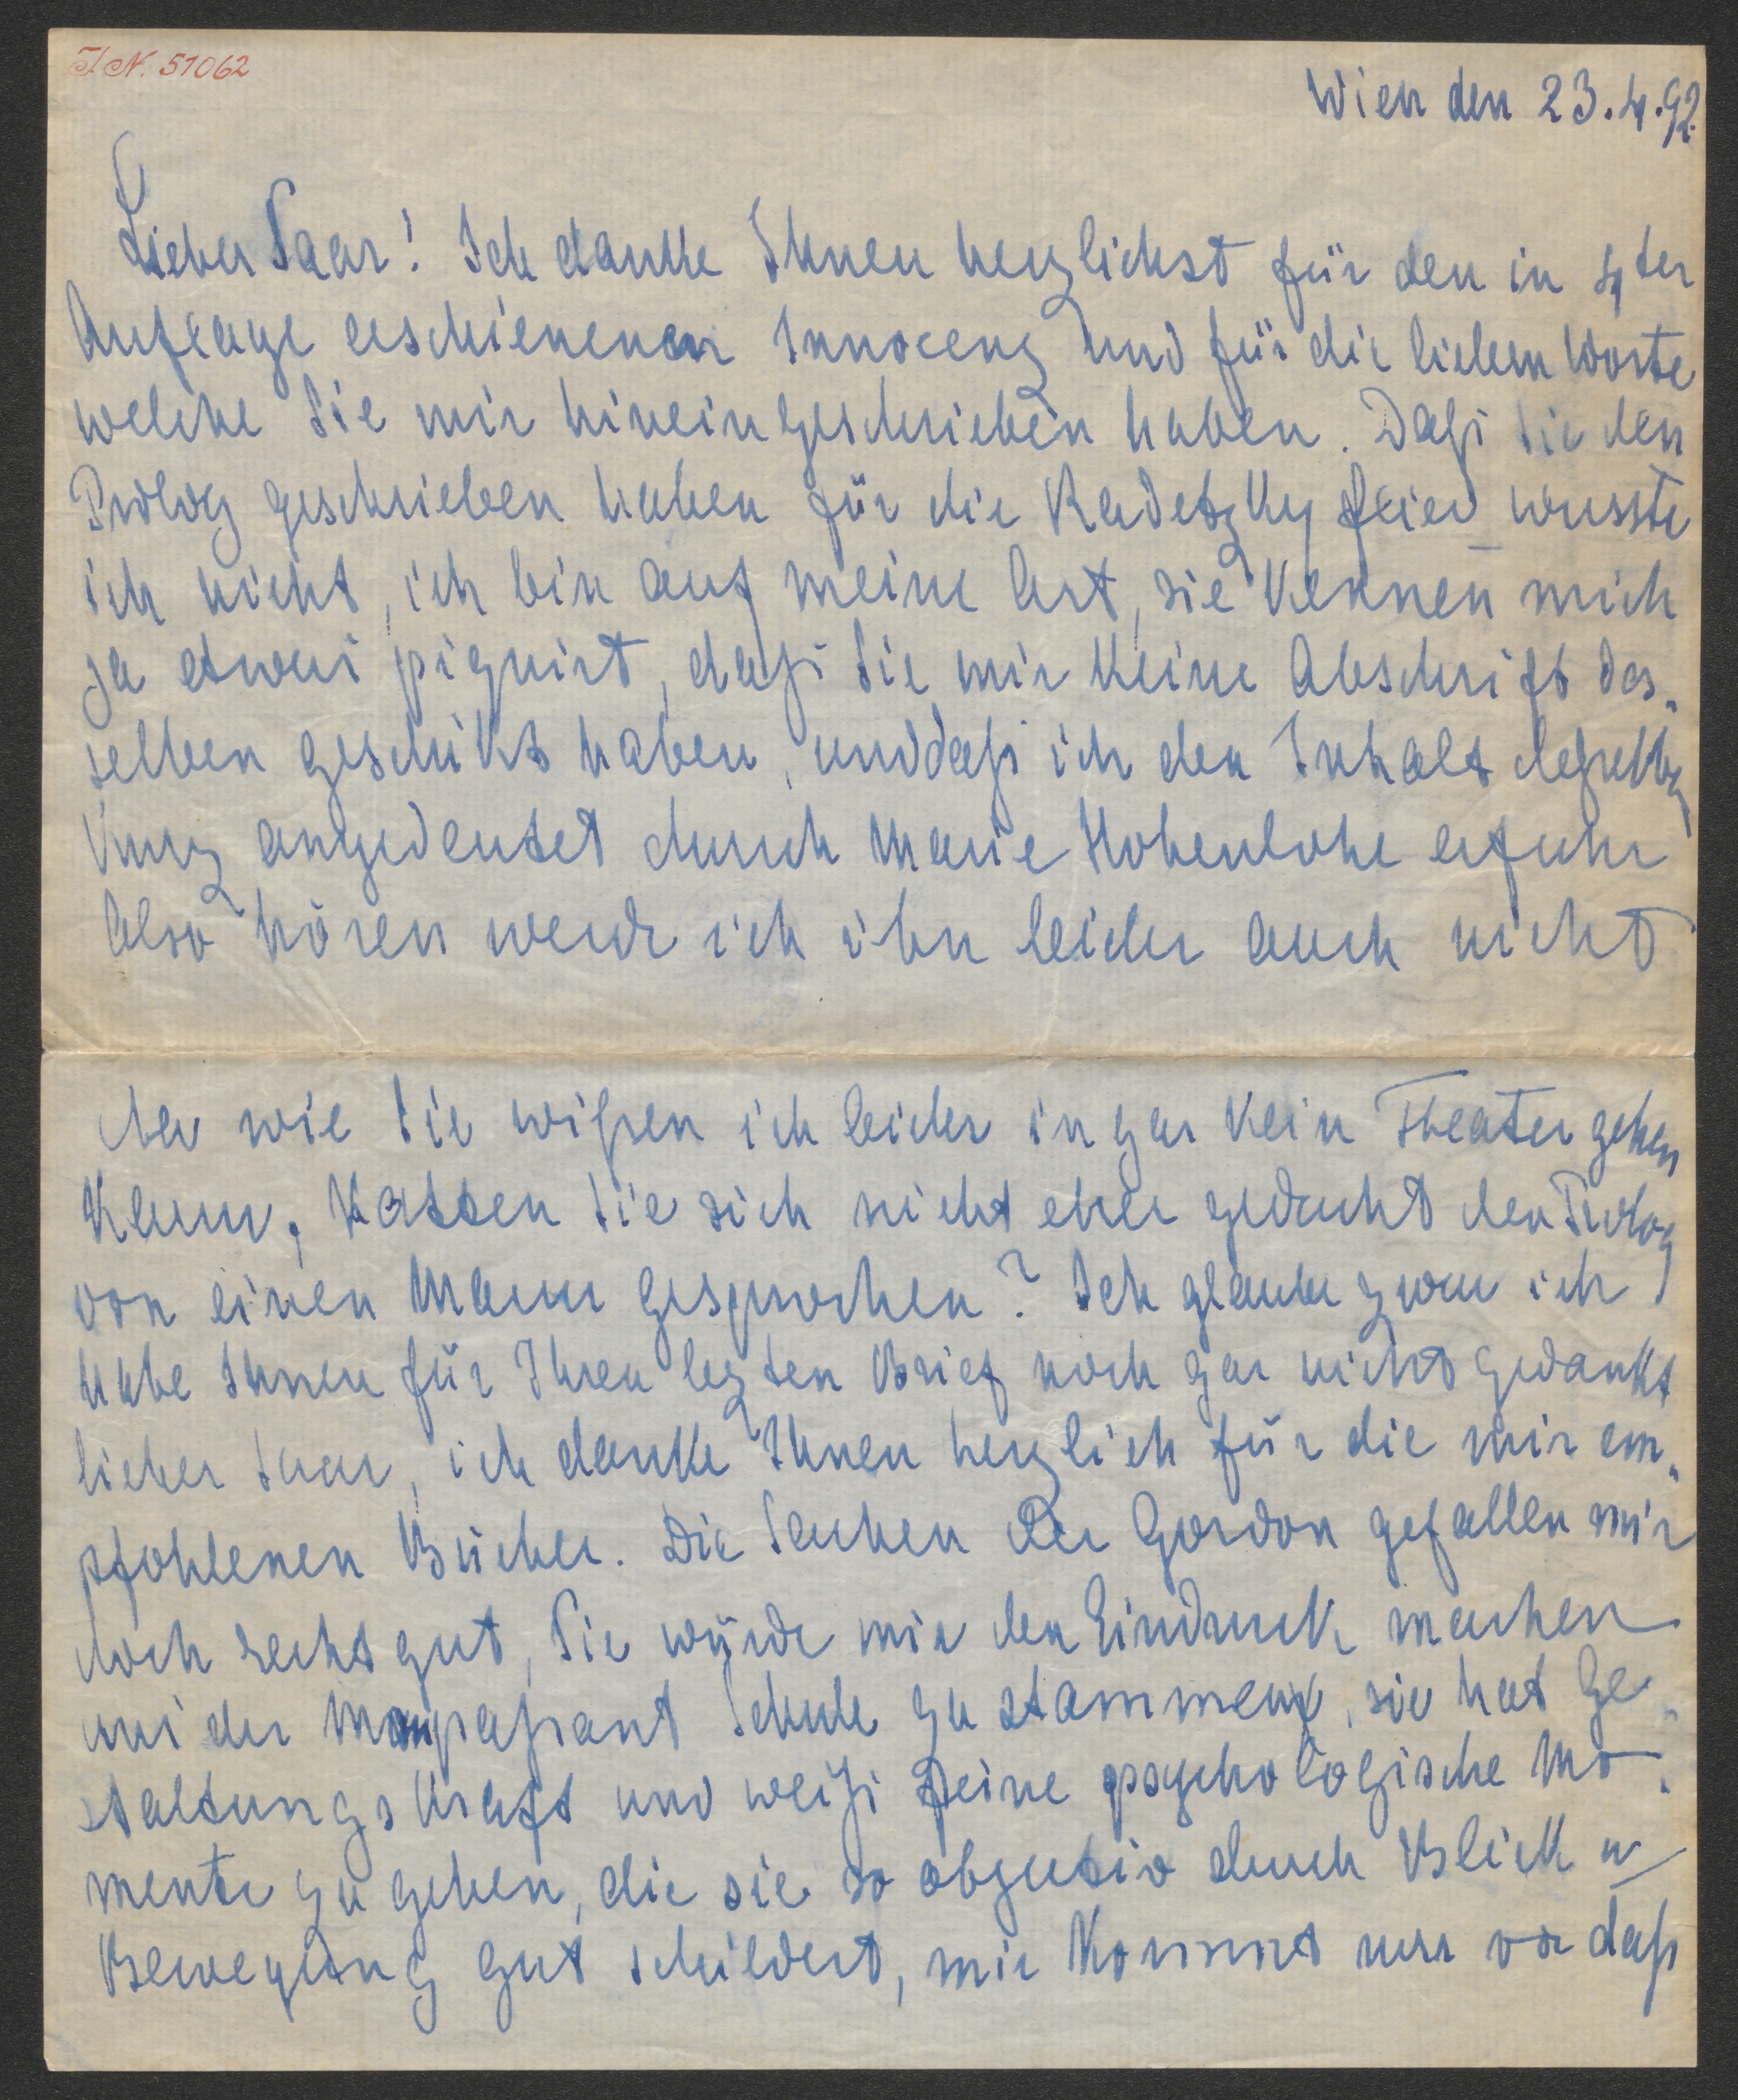 I. N. 51062
Wien den 23.4.92.
Lieber Saar! Ich danke Ihnen herzlichst für den in 4ter
Auflage erschienenen Innocenz und für die lieben Worte
welche Sie mir hineingeschrieben haben. Daß Sie den
Prolog geschrieben haben für die Radetzky feier wusste
ich nicht, ich bin auf meine Art, sie kennen mich
ja etwas piquirt, daß Sie mir keine Abschrift des„
selben geschikt haben, und daß ich den Inhalt deßelben
kurz angedeutet durch Marie Hohenlohe erfuhr
Also hören werde ich ihn leider auch nicht
da wie Sie wißen ich leider in gar kein Theater gehen
kann, hatten Sie sich nicht eher gedacht den Prolog
von einen Mann gesprochen? Ich glaube zwar ich
habe Ihnen für Ihren lezten Brief noch gar nicht gedankt
lieber Saar, ich danke Ihnen herzlich für die mir em„
pfohlenen Bücher. Die Sachen der Gordon gefallen mir
doch recht gut, Sie würde mir den Eindruck machen
aus der Maupaßant Schule zu stammen, sie hat Ge„
staltungskraft und weiß feine psychologische Mo„
mente zu geben, die sie so objectiv durch Blick u
Bewegung gut schildert, mir kommt nur vor daß